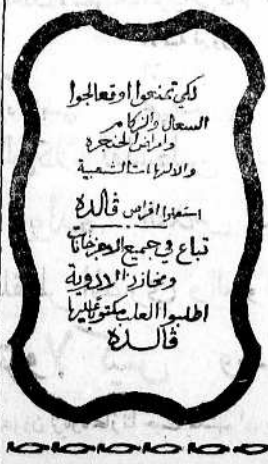 لكي تمنعوا او تعالجوا
السعال والزكام
وامراض الحنجرة
والالتهابات الشعبية
استعملوا اقراص ڤالده
تباع في جميع الاجزخانات
ومخازن الادوية
اطلبوا العلب مكتوب عليها
ڤالدة